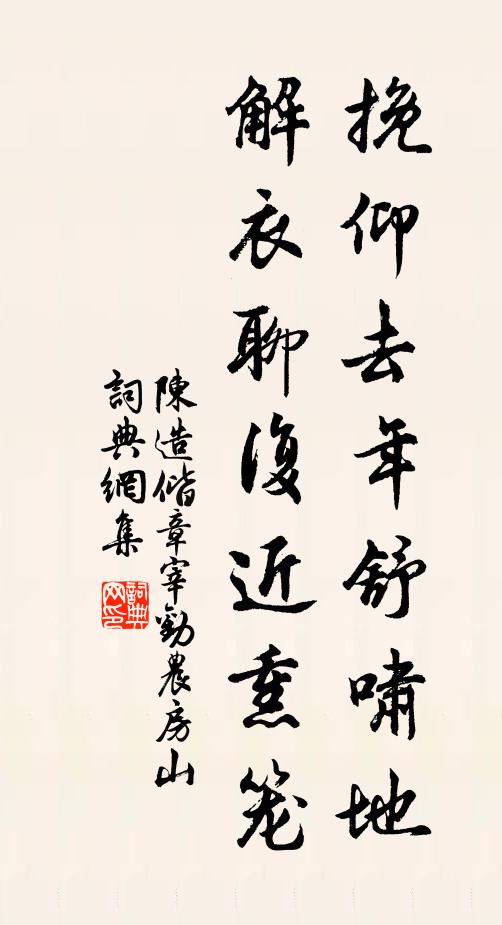 挽仰去年舒嘯地
解衣聊復近熏笼
陳造偕章宰勸農房山
詞典網集
詞典网印